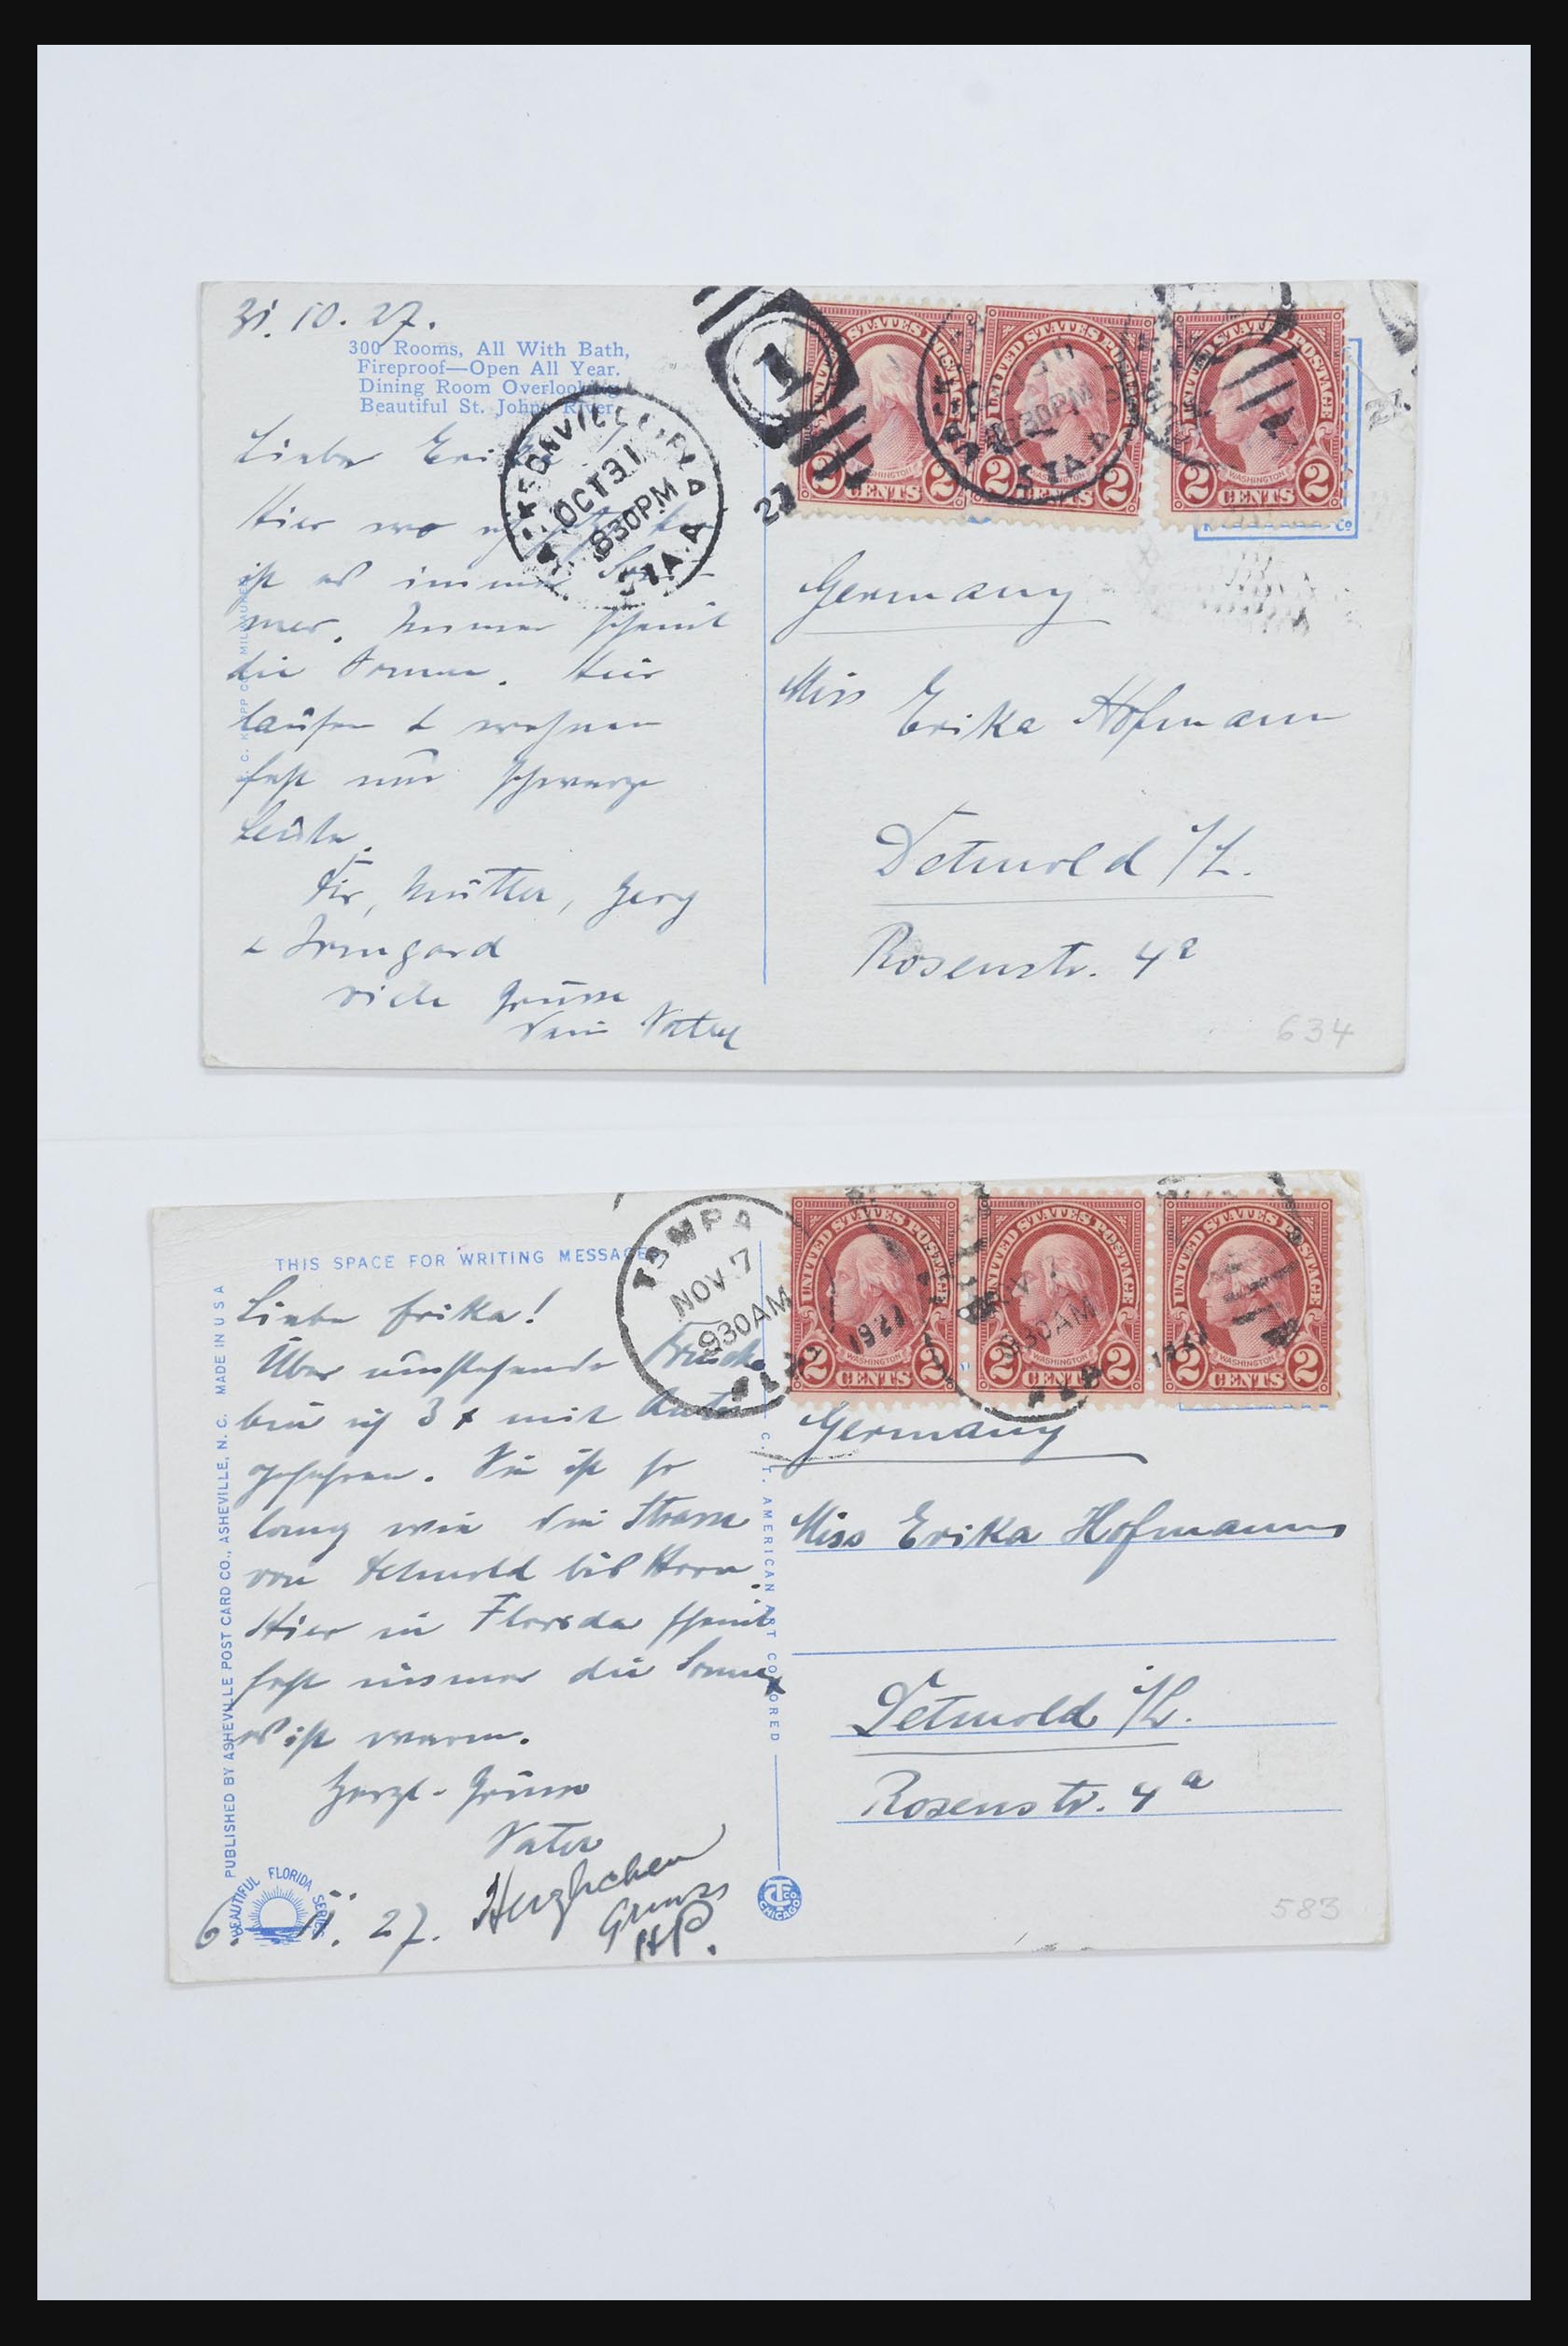 31.10.27.
300 Rooms, All With Bath,
Fireproof—Open All Year.
Dining Room Overlooking
Beautiful St. Johns River.
Liebe Erika!
Hier wo ich
ist es immer Som-
mer. Immer scheint
die Sonne. Hier
laufen & wohnen
fast nur schwarze
Leute.
Dir, Mutter, Georg
& Irmgard
viele Grüsse
Dein Vater
E. C. KROPP CO. MILWAUKEE
JACKSONVILLE, FLA
OCT 31
830PM
STA. A
1
27
UNITED STATES POSTAGE
WASHINGTON
2 CENTS 2
UNITED STATES POSTAGE
WASHINGTON
2 CENTS 2
UNITED STATES POSTAGE
WASHINGTON
2 CENTS 2
830PM
STA. A
Germany
Miss Erika Hofmann
Detmold i/L.
Rosenstr. 4a
634
THIS SPACE FOR WRITING MESSAGES
Liebe Erika!
Über umstehende Brücke
bin ich 3 x mit Auto
gefahren. Sie ist so
lang wie die Strasse
von Detmold bis Horn.
Hier in Florida scheint
fast immer die Sonne
es ist warm.
Herzl. Grüsse
Vater
Herzlichen
Gruss
HP.
6. 11. 27.
BEAUTIFUL FLORIDA SERIES
PUBLISHED BY ASHEVILLE POST CARD CO., ASHEVILLE, N. C. MADE IN U S A
C. T. AMERICAN ART COLORED
CT CO CHICAGO
TAMPA
NOV 7
930AM
1927
UNITED STATES POSTAGE
WASHINGTON
2 CENTS 2
UNITED STATES POSTAGE
WASHINGTON
2 CENTS 2
UNITED STATES POSTAGE
WASHINGTON
2 CENTS 2
NOV 7
930AM
1927
Germany
Miss Erika Hofmann
Detmold i/L.
Rosenstr. 4a
583